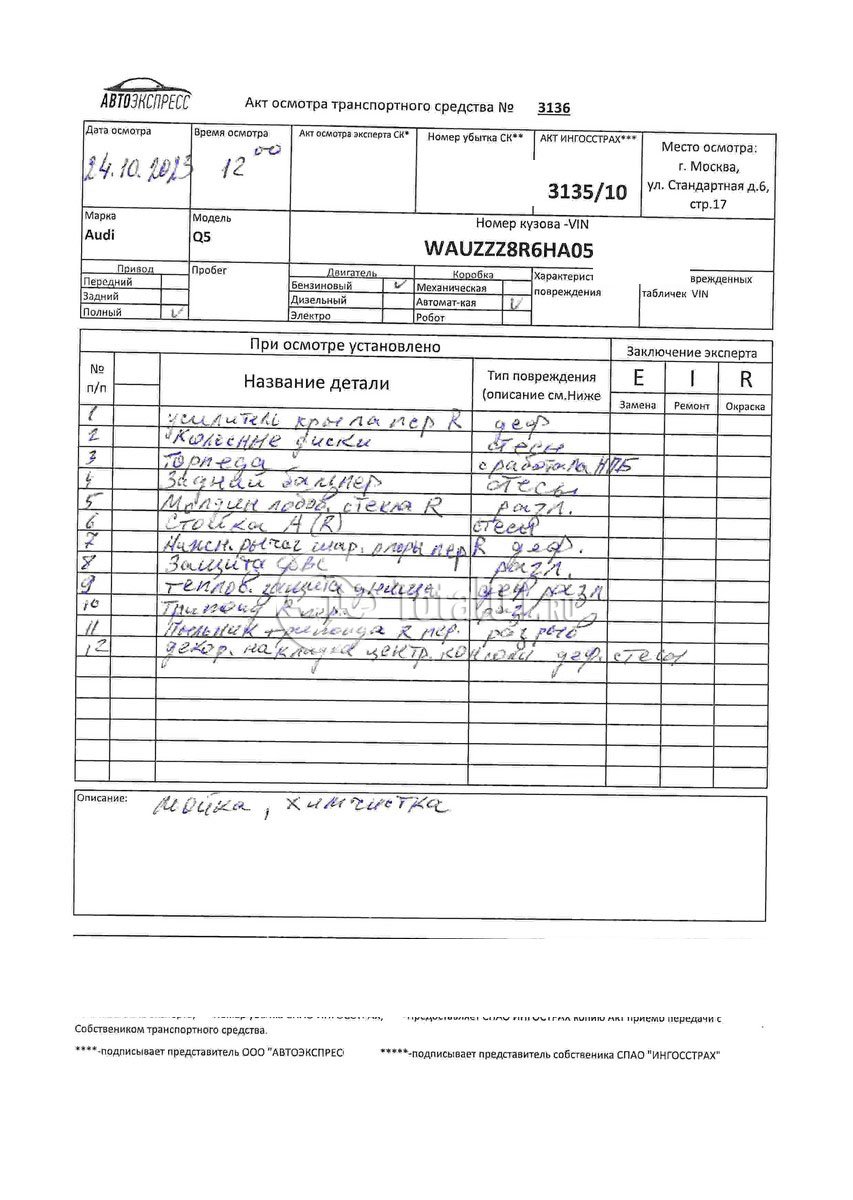 АВТОЭКСПРЕСС
Акт осмотра транспортного средства № 3136
Дата осмотра Время осмотра Акт осмотра эксперта СК* Номер убытка СК** АКТ ИНГОССТРАХ*** Место осмотра:
г. Москва,
24.10.2023 12 00 3135/10 ул. Стандартная д.6,
стр.17
Марка Модель Номер кузова -VIN
Audi Q5 WAUZZZ8R6HA05
Привод Пробег Двигатель Коробка Характерист врежденных
Передний Бензиновый ✓ Механическая повреждения табличек VIN
Задний Дизельный Автомат-кая ✓
Полный ✓ Электро Робот
При осмотре установлено Заключение эксперта
№ п/п Название детали Тип повреждения (описание см.Ниже E I R
Замена Ремонт Окраска
1 усилитель крыла пер R деф
2 Колесные диски стесы
3 Торпеда сработала НПБ
4 Задний бампер стесы
5 Молдин лобов. стекла R разл.
6 Стойка А (R) стесы
7 Нижн. рычаг шар. опоры пер R деф.
8 Защита ДВС разл.
9 теплов. защита днища деф. разл
10 Трипоид R пер.
11 Пыльник трипоида R пер. разрыв
12 декор. накладка центр. консоли деф. стесы
Описание: мойка, химчистка
Собствеником транспортного средства.
****-подписывает представитель ООО "АВТОЭКСПРЕС *****-подписывает представитель собственика СПАО "ИНГОССТРАХ"